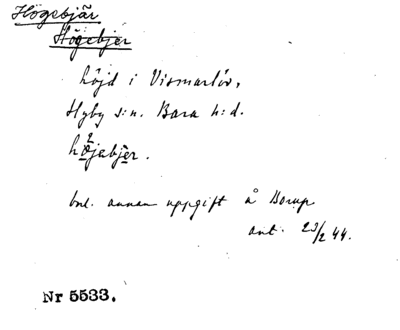 Högebjär
Högebjer
höjd i Vismarlöv,
Hyby s:n. Bara h:d.
hö²jebjer.
enl. annan uppgift å Borup
ant. 23/2 44.
Nr 5533.